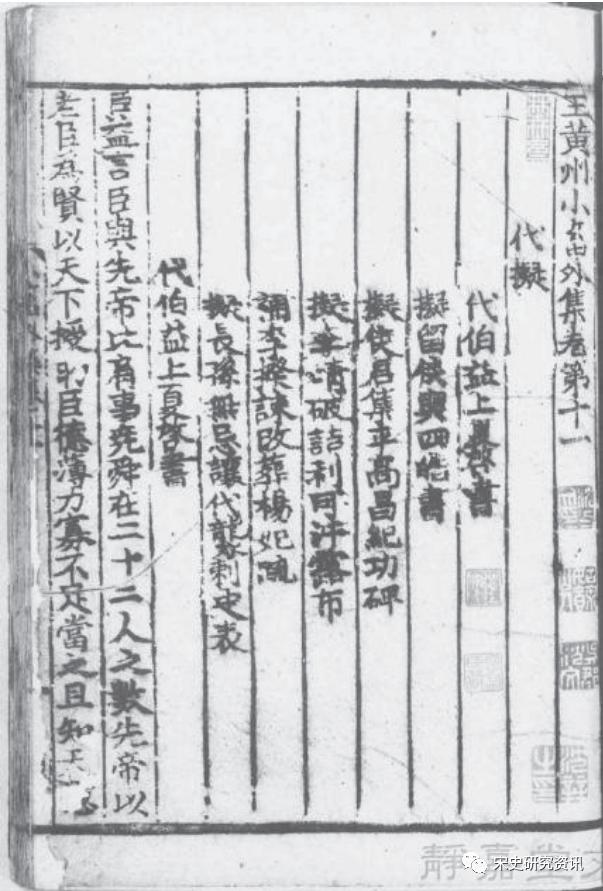 王黃州小畜外集卷第十一
代擬
代伯益上夏啓書
擬留侯與四皓書
擬侯君集平高昌紀功碑
擬李靖破頡利可汗露布
擬長孫無忌讓代襲刺史表
代伯益上夏啓書
臣益言臣與先帝比肩事堯舜在二十二人之數先帝以
老臣為賢以天下授臣德薄力寡不足當之且知
靜嘉堂文
宋史研究资讯